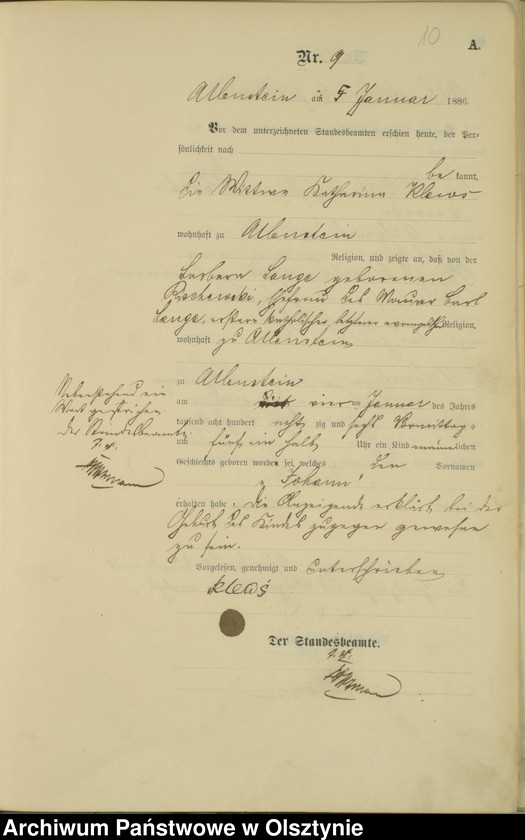 10
A.
Nr. 9
Allenstein am 5 Januar 1886.
Vor dem unterzeichneten Standesbeamten erschien heute, der Per-
sönlichkeit nach
be kannt,
die Witwe Katharina Klews
wohnhaft zu Allenstein
Religion, und zeigte an, daß von der
Barbara Lange geborenen
Ehefrau des Maurer Carl
Lange, erstere katholischer, letzterer evangelischer Religion,
wohnhaft zu Allenstein
zu Allenstein
am vier ten Januar des Jahres
tausend acht hundert acht zig und sechs Vormittags
um fünf ein halb Uhr ein Kind männlichen
Geschlechts geboren worden sei, welches den Vornamen
„Johann“
erhalten habe. Die Anzeigende erklärt bei der
Geburt des Kindes zugegen gewesen
zu sein.
Vorgelesen, genehmigt und unterschrieben
Klews
Der Standesbeamte.
Nebenstehend ein
Wort gestrichen.
Der Standesbeamte
Archiwum Państwowe w Olsztynie